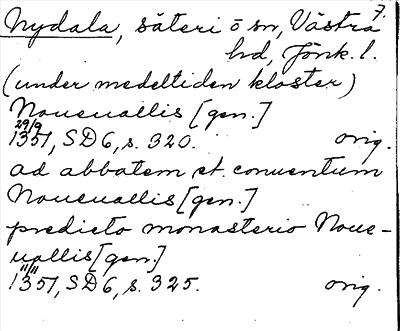 7.
Nydala, säteri ö sn, Västra
hd, Jönk. l.
(under medeltiden kloster)
Noueuallis [gen.]
29/9
1351, SD 6, s. 320. orig.
ad abbatem et. conuentum
Noueuallis [gen.]
predicto monasterio Noue-
uallis [gen.]
11/11
1351, SD 6, s. 325. orig.